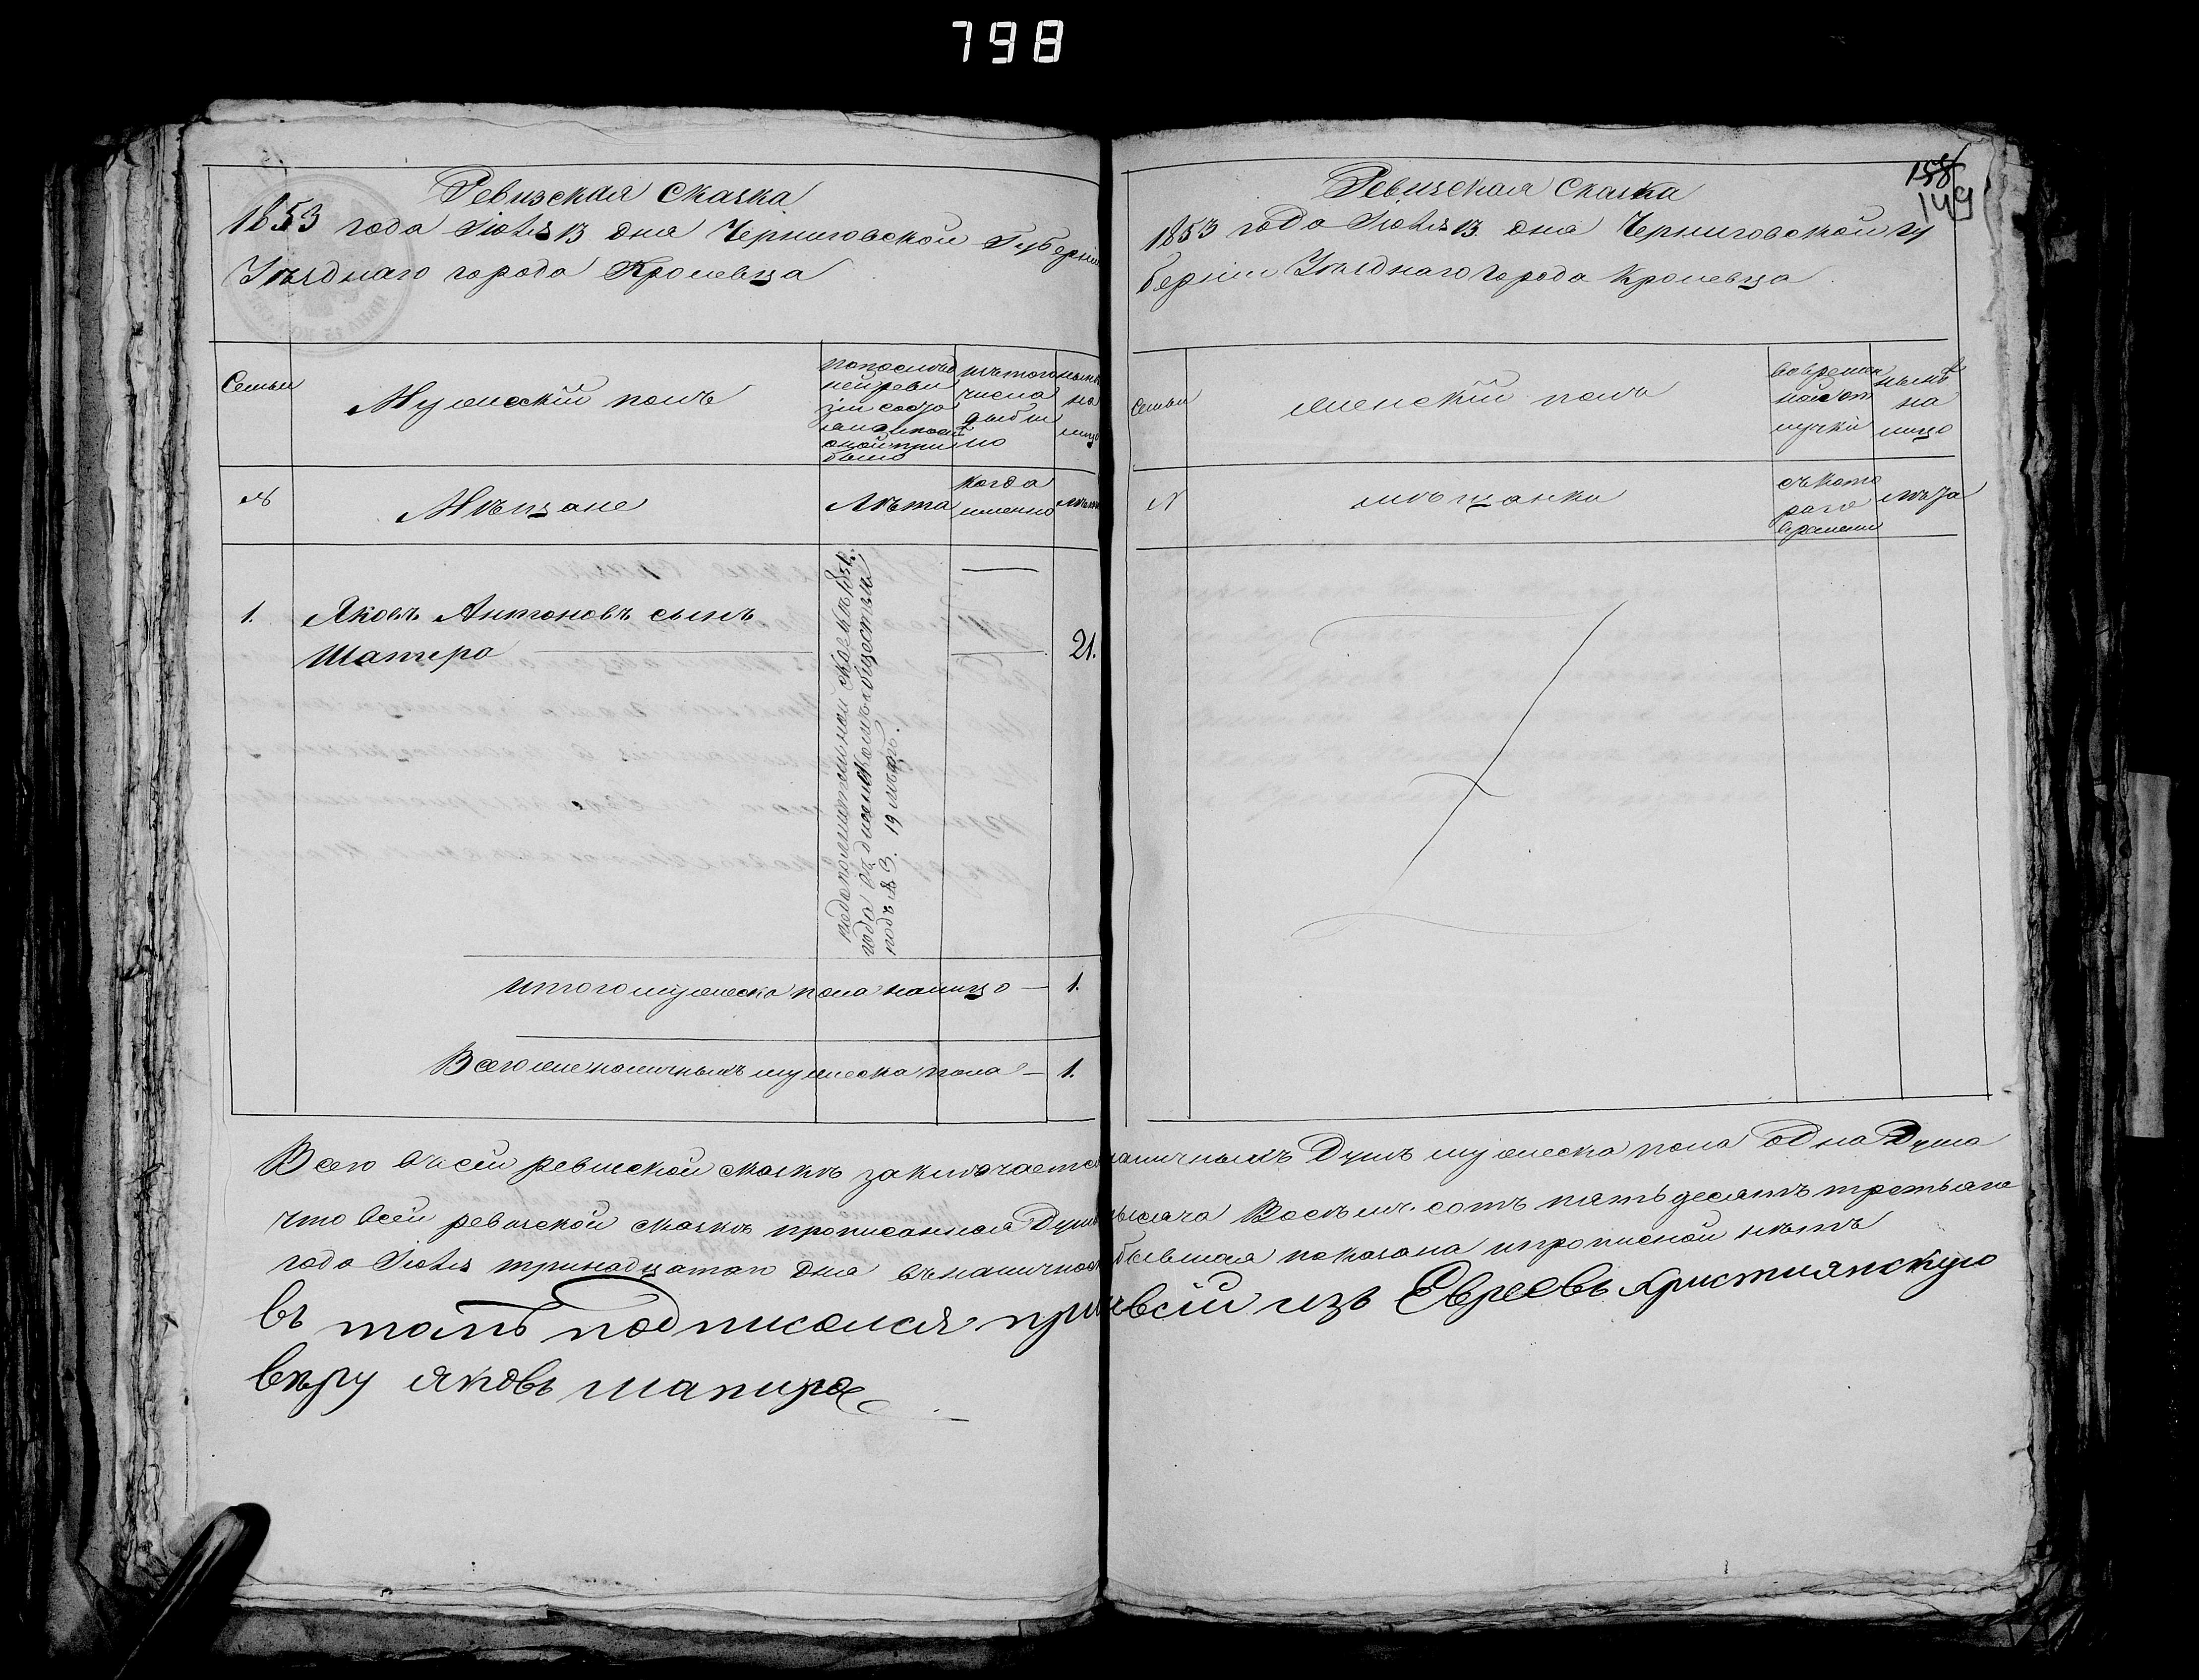 798
Ревизская Сказка
1853 года Іюля 13 дня Черниговской Губерніи
Уѣзднаго города Кролевца
Семьи
Мужескій полъ
по послѣд
ней реви
зіи состо
яло и послѣ
оной при
было
изъ того
числа
выбы
ло
нынѣ
на
лицо
№
Мѣщане
Лѣта
когда
именно
лѣта
1.
Яковъ Антоновъ сынъ
Шапиро
21.
по дополнительной сказкѣ 1851.
года въ мѣщанскомъ обществѣ
подъ № 3. 19 лѣтъ.
итого мужеска пола налицо — 1.
Всего же наличныхъ мужеска пола — 1.
158
149
Ревизская Сказка
1853 года Іюля 13. дня Черниговской гу
берніи Уѣзднаго города Кролевца
семьи
женскій полъ
во времен
ной от
лучкѣ
нынѣ
на
лицо
N
мѣщанки
съ кото
раго
времени
лѣта
Всего въ сей ревизской сказкѣ заключается наличныхъ Душъ мужеска пола одна Душа
что в сей ревизской сказкѣ прописанная Душа тысяча Восемь сотъ пятьдесятъ третьяго
года Іюля тринадцатаго дня въ наличности бывшая показана и прописной нѣтъ
въ томъ подписался принявсій изъ Евреевъ християнскую
вѣру яковъ шапиро